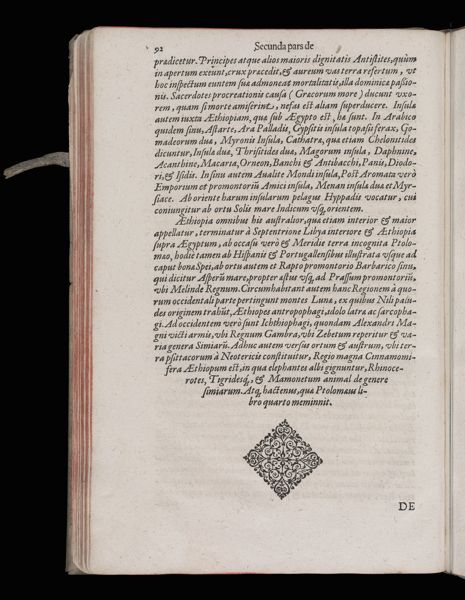 92
Secunda pars de
prædicetur. Principes atque alios maioris dignitatis Antistites, quùm
in apertum exeunt, crux præcedit, & aureum vas terra refertum, vt
hoc inspectum euntem suæ admoneat mortalitatis, illa dominicæ passio-
nis. Sacerdotes procreationis causa (Græcorum more) ducunt vxo-
rem, quam si morte amiserint, nefas est aliam superducere. Insulæ
autem iuxta Æthiopiam, quæ sub Ægypto est, hæ sunt. In Arabico
quidem sinu, Astarte, Ara Palladis, Gypsitis insula topasis ferax, Go-
madeorum duæ, Myronis Insula, Cathatræ, quæ etiam Chelonitides
dicuntur, Insulæ duæ, Thrisitides duæ, Magorum insula, Daphnine,
Acanthine, Macaria, Orneon, Banchi & Antibacchi, Panis, Diodo-
ri, & Isidis. In sinu autem Aualite Mondi insula, Post Aromata verò
Emporium et promontoriū Amici insula, Menan insulæ duæ et Myr-
siace. Ab oriente harum insularum pelagus Hyppadis vocatur, cui
coniungitur ab ortu Solis mare Indicum vsq₃ orientem.
Æthiopia omnibus his australior, quæ etiam interior & maior
appellatur, terminatur à Septentrione Libya interiore & Æthiopia
supra Ægyptum, ab occasu verò & Meridie terra incognita Ptolo-
mæo, hodie tamen ab Hispanis & Portugallensibus illustrata vsque ad
caput bonæ Spei, ab ortu autem et Rapto promontorio Barbarico sinu,
qui dicitur Asperū mare, propter æstus vsq₃ ad Prassum promontoriū,
vbi Melinde Regnum. Circumhabitant autem hanc Regionem à quo-
rum occidentali parte pertingunt montes Lunæ, ex quibus Nili palu-
des originem trahūt, Æthiopes antropophagi, idololatræ ac sarcopha-
gi. Ad occidentem verò sunt Ichthiophagi, quondam Alexandri Ma-
gni victi armis, vbi Regnum Gambra, vbi Zebetum reperitur & va-
ria genera Simiarū. Adhuc autem versus ortum & austrum, vbi ter-
ra psittacorum à Neotericis constituitur, Regio magna Cinnamomi-
feræ Æthiopum est, in qua elephantes albi gignuntur, Rhinoce-
rotes, Tigridesq₃, & Mamonetum animal de genere
simiarum. Atq₃ hactenus, quæ Ptolomæus li-
bro quarto meminit.
DE